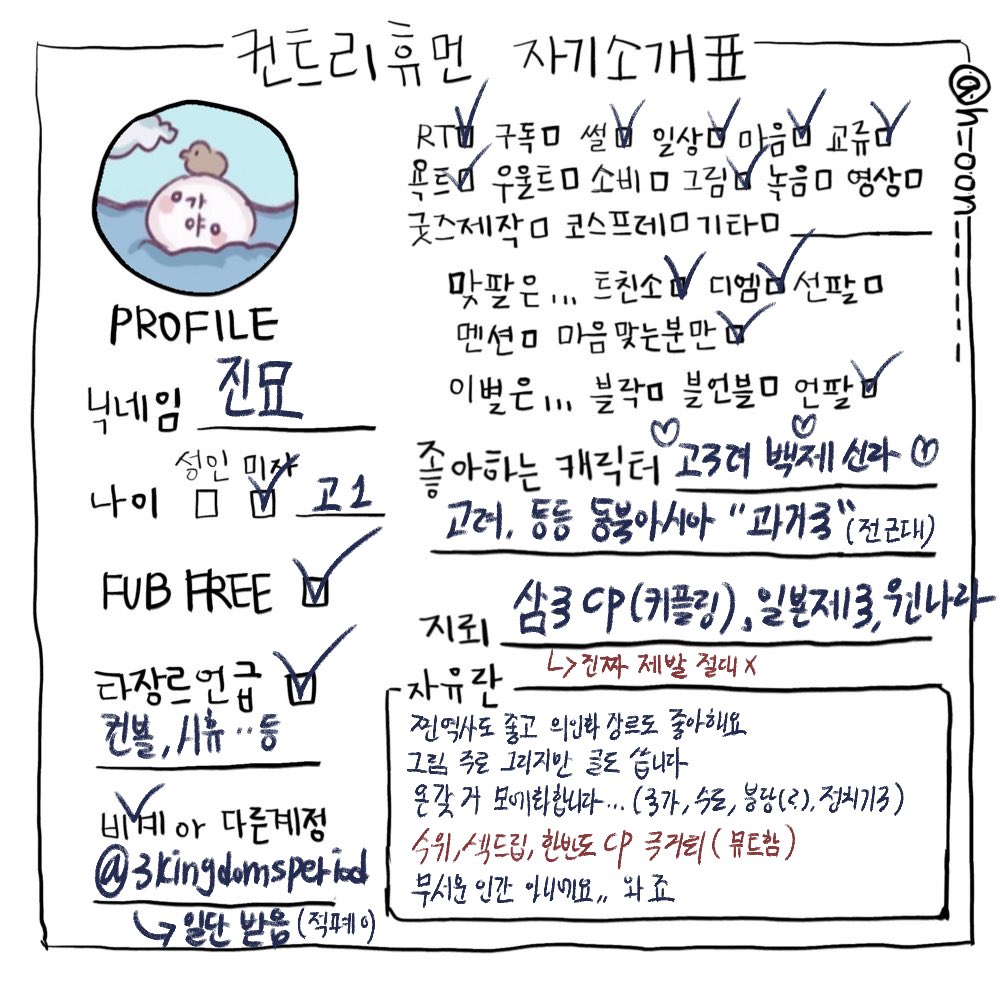 컨트리휴먼 자기소개표
@h_oon_____
가
야
PROFILE
닉네임 진묘
나이 성인 미자 고1
FUB FREE
타장르언급
컨볼, 시휴..등
비계 or 다른계정
@3kingdomsperiod
↳일단 받음 (적폐 o)
RT 구독 썰 일상 마음 교류
욕트 우울트 소비 그림 녹음 영상
굿즈제작 코스프레 기타
맞팔은... 트친소 디엠 선팔
멘션 마음맞는분만
이별은... 블락 블언블 언팔
좋아하는 캐릭터 고구려 백제 신라
고려, 등등 동북아시아 "과거국" (전근대)
지뢰 삼국 CP(커플링), 일본제국, 원나라
↳진짜 제발 절대 x
자유란
찐역사도 좋고 의인화 장르도 좋아해요
그림 주로 그리지만 글도 씁니다
온갖 거 모에화합니다... (국가, 수도, 붕당(?), 정치기구)
수위, 섹드립, 한반도 CP 극거퇴 (뮤트함)
무서운 인간 아니에요,, 와 죠